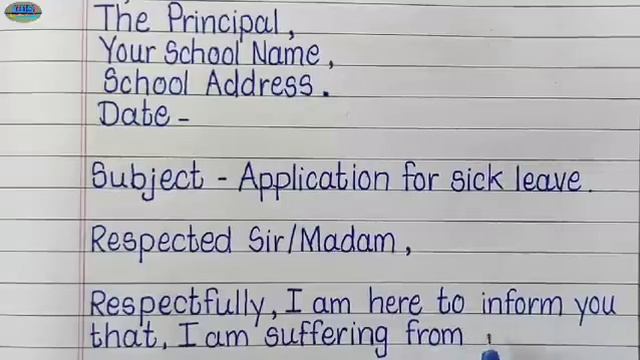 The Principal,
Your School Name,
School Address.
Date -
Subject - Application for sick leave.
Respected Sir/Madam,
Respectfully, I am here to inform you
that, I am suffering from